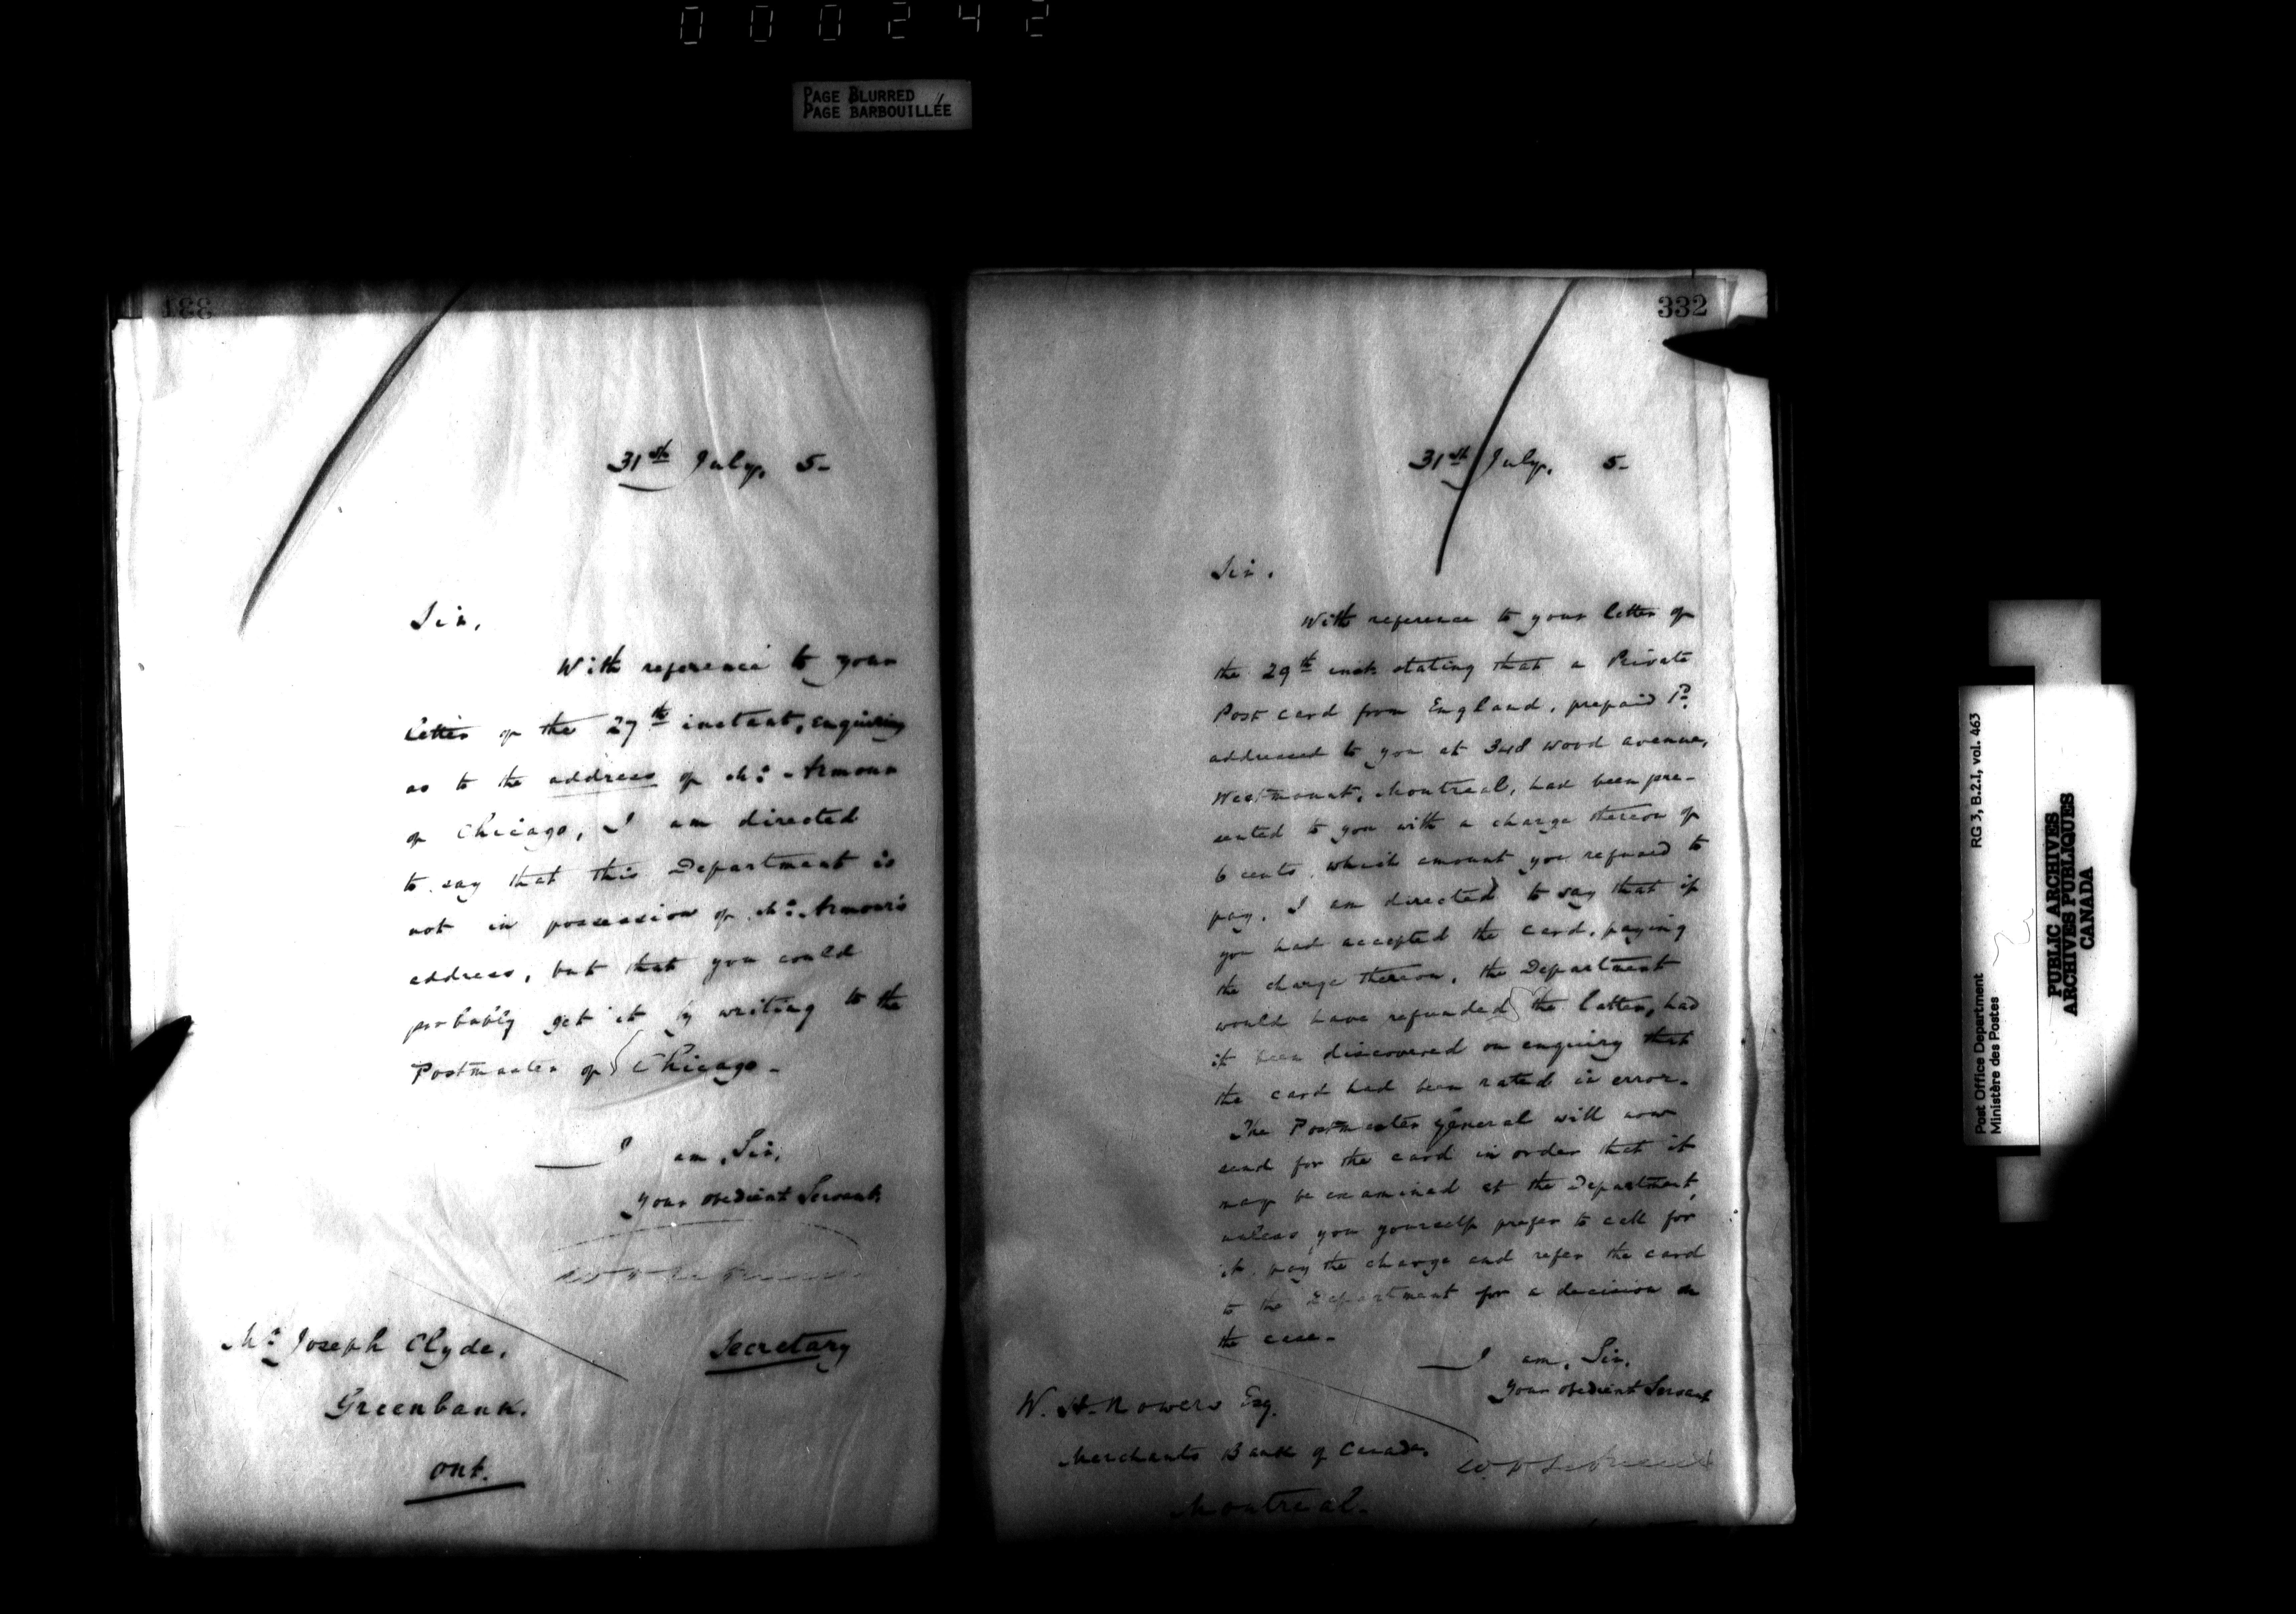 000242
PAGE BLURRED
PAGE BARBOUILLÉE
331
31st July. 5-
Sir,
With reference to your
letter of the 27th instant, enquiring
as to the address of Mr. Armour
of Chicago, I am directed
to say that this Department is
not in possession of Mr. Armour's
address, but that you could
probably get it by writing to the
Postmaster of Chicago-
I am, Sir,
Your obedient Servant
Secretary
Mr. Joseph Clyde,
Greenbank.
Ont.
332
31st July. 5-
Sir.
With reference to your letter of
the 29th inst stating that a Private
Post card from England, prepaid 1d
addressed to you at 348 Wood avenue,
Westmount, Montreal, had been pre-
sented to you with a charge thereon of
6 cents, which amount you refused to
pay, I am directed to say that if
you had accepted the card, paying
the charge thereon, the Department
would have refunded the latter, had
it been discovered on enquiry that
the card had been rated in error.
The Postmaster General will now
send for the card in order that it
may be examined at the Department,
unless you yourself prefer to call for
it, pay the charge and refer the card
to the Department for a decision in
the case-
I am, Sir,
Your obedient Servant
W. H. Esq.
Merchants Bank of Canada.
Montreal.
Post Office Department RG 3, B.2.I, vol. 463
Ministère des Postes
PUBLIC ARCHIVES
ARCHIVES PUBLIQUES
CANADA